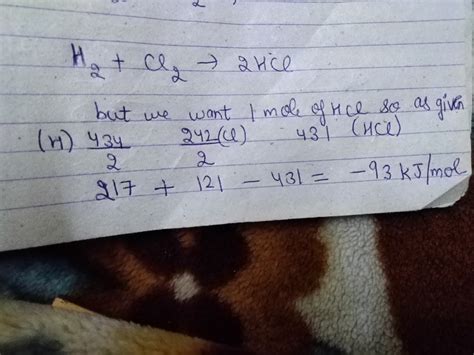 H2 + Cl2 → 2HCl
but we want 1 mole of HCl so as given
(H) 434/2 242(Cl)/2 431 (HCl)
217 + 121 - 431 = -93 kJ/mol